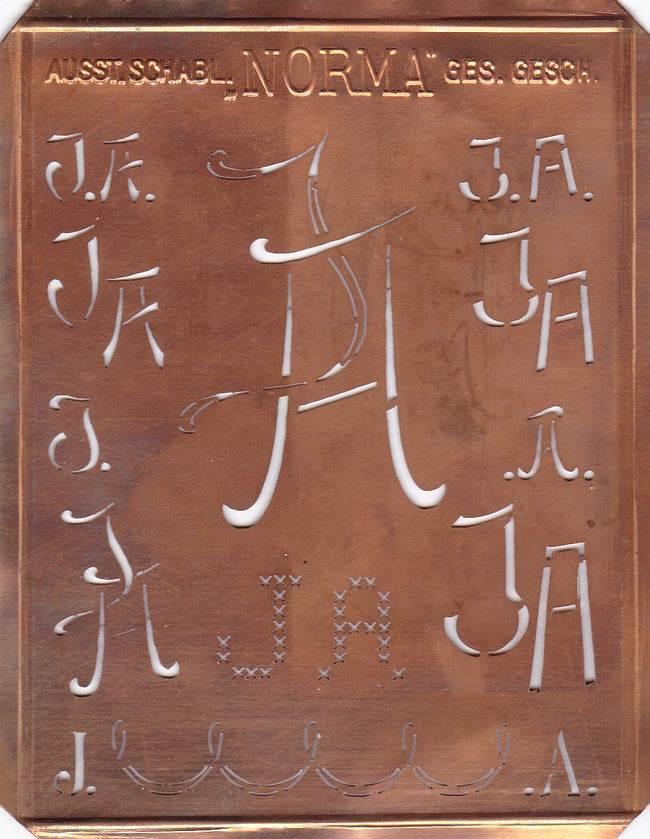 AUSST. SCHABL. „NORMA“ GES. GESCH.
J.A. J.A.
JA
JA
JA
J. .A.
JA
JA
JA
J. .A.